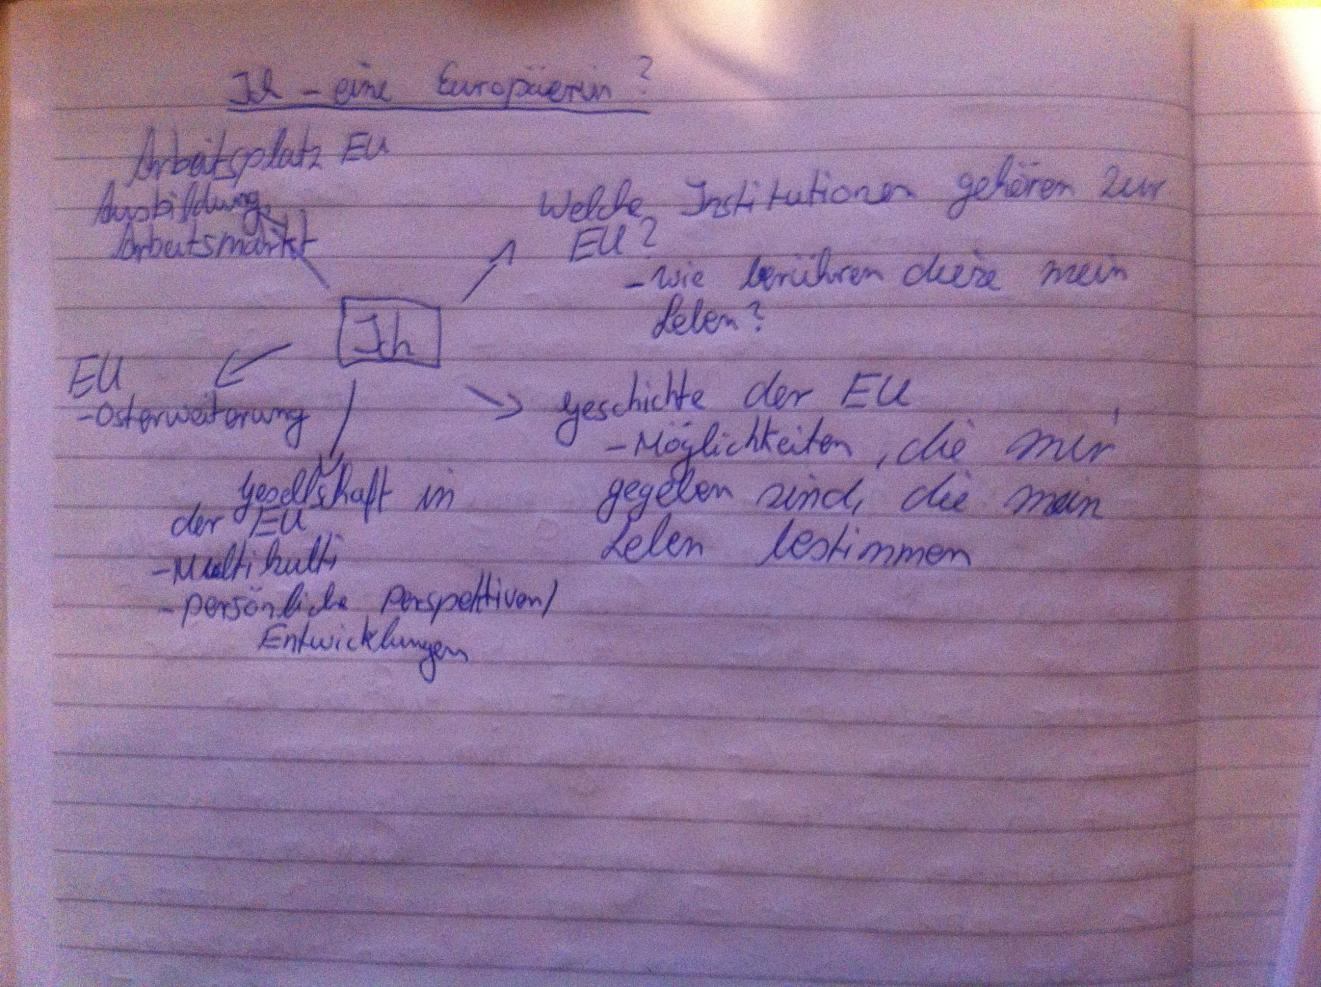 Ich – eine Europäerin?
Arbeitsplatz EU
Ausbildung,
Arbeitsmarkt
Welche Institutionen gehören zur
EU?
- wie berühren diese mein
Leben?
Ich
EU
- Osterweiterung
Geschichte der EU
- Möglichkeiten, die mir
gegeben sind, die mein
Leben bestimmen
Gesellschaft in
der EU
- Multikulti
- persönliche Perspektiven/
Entwicklungen